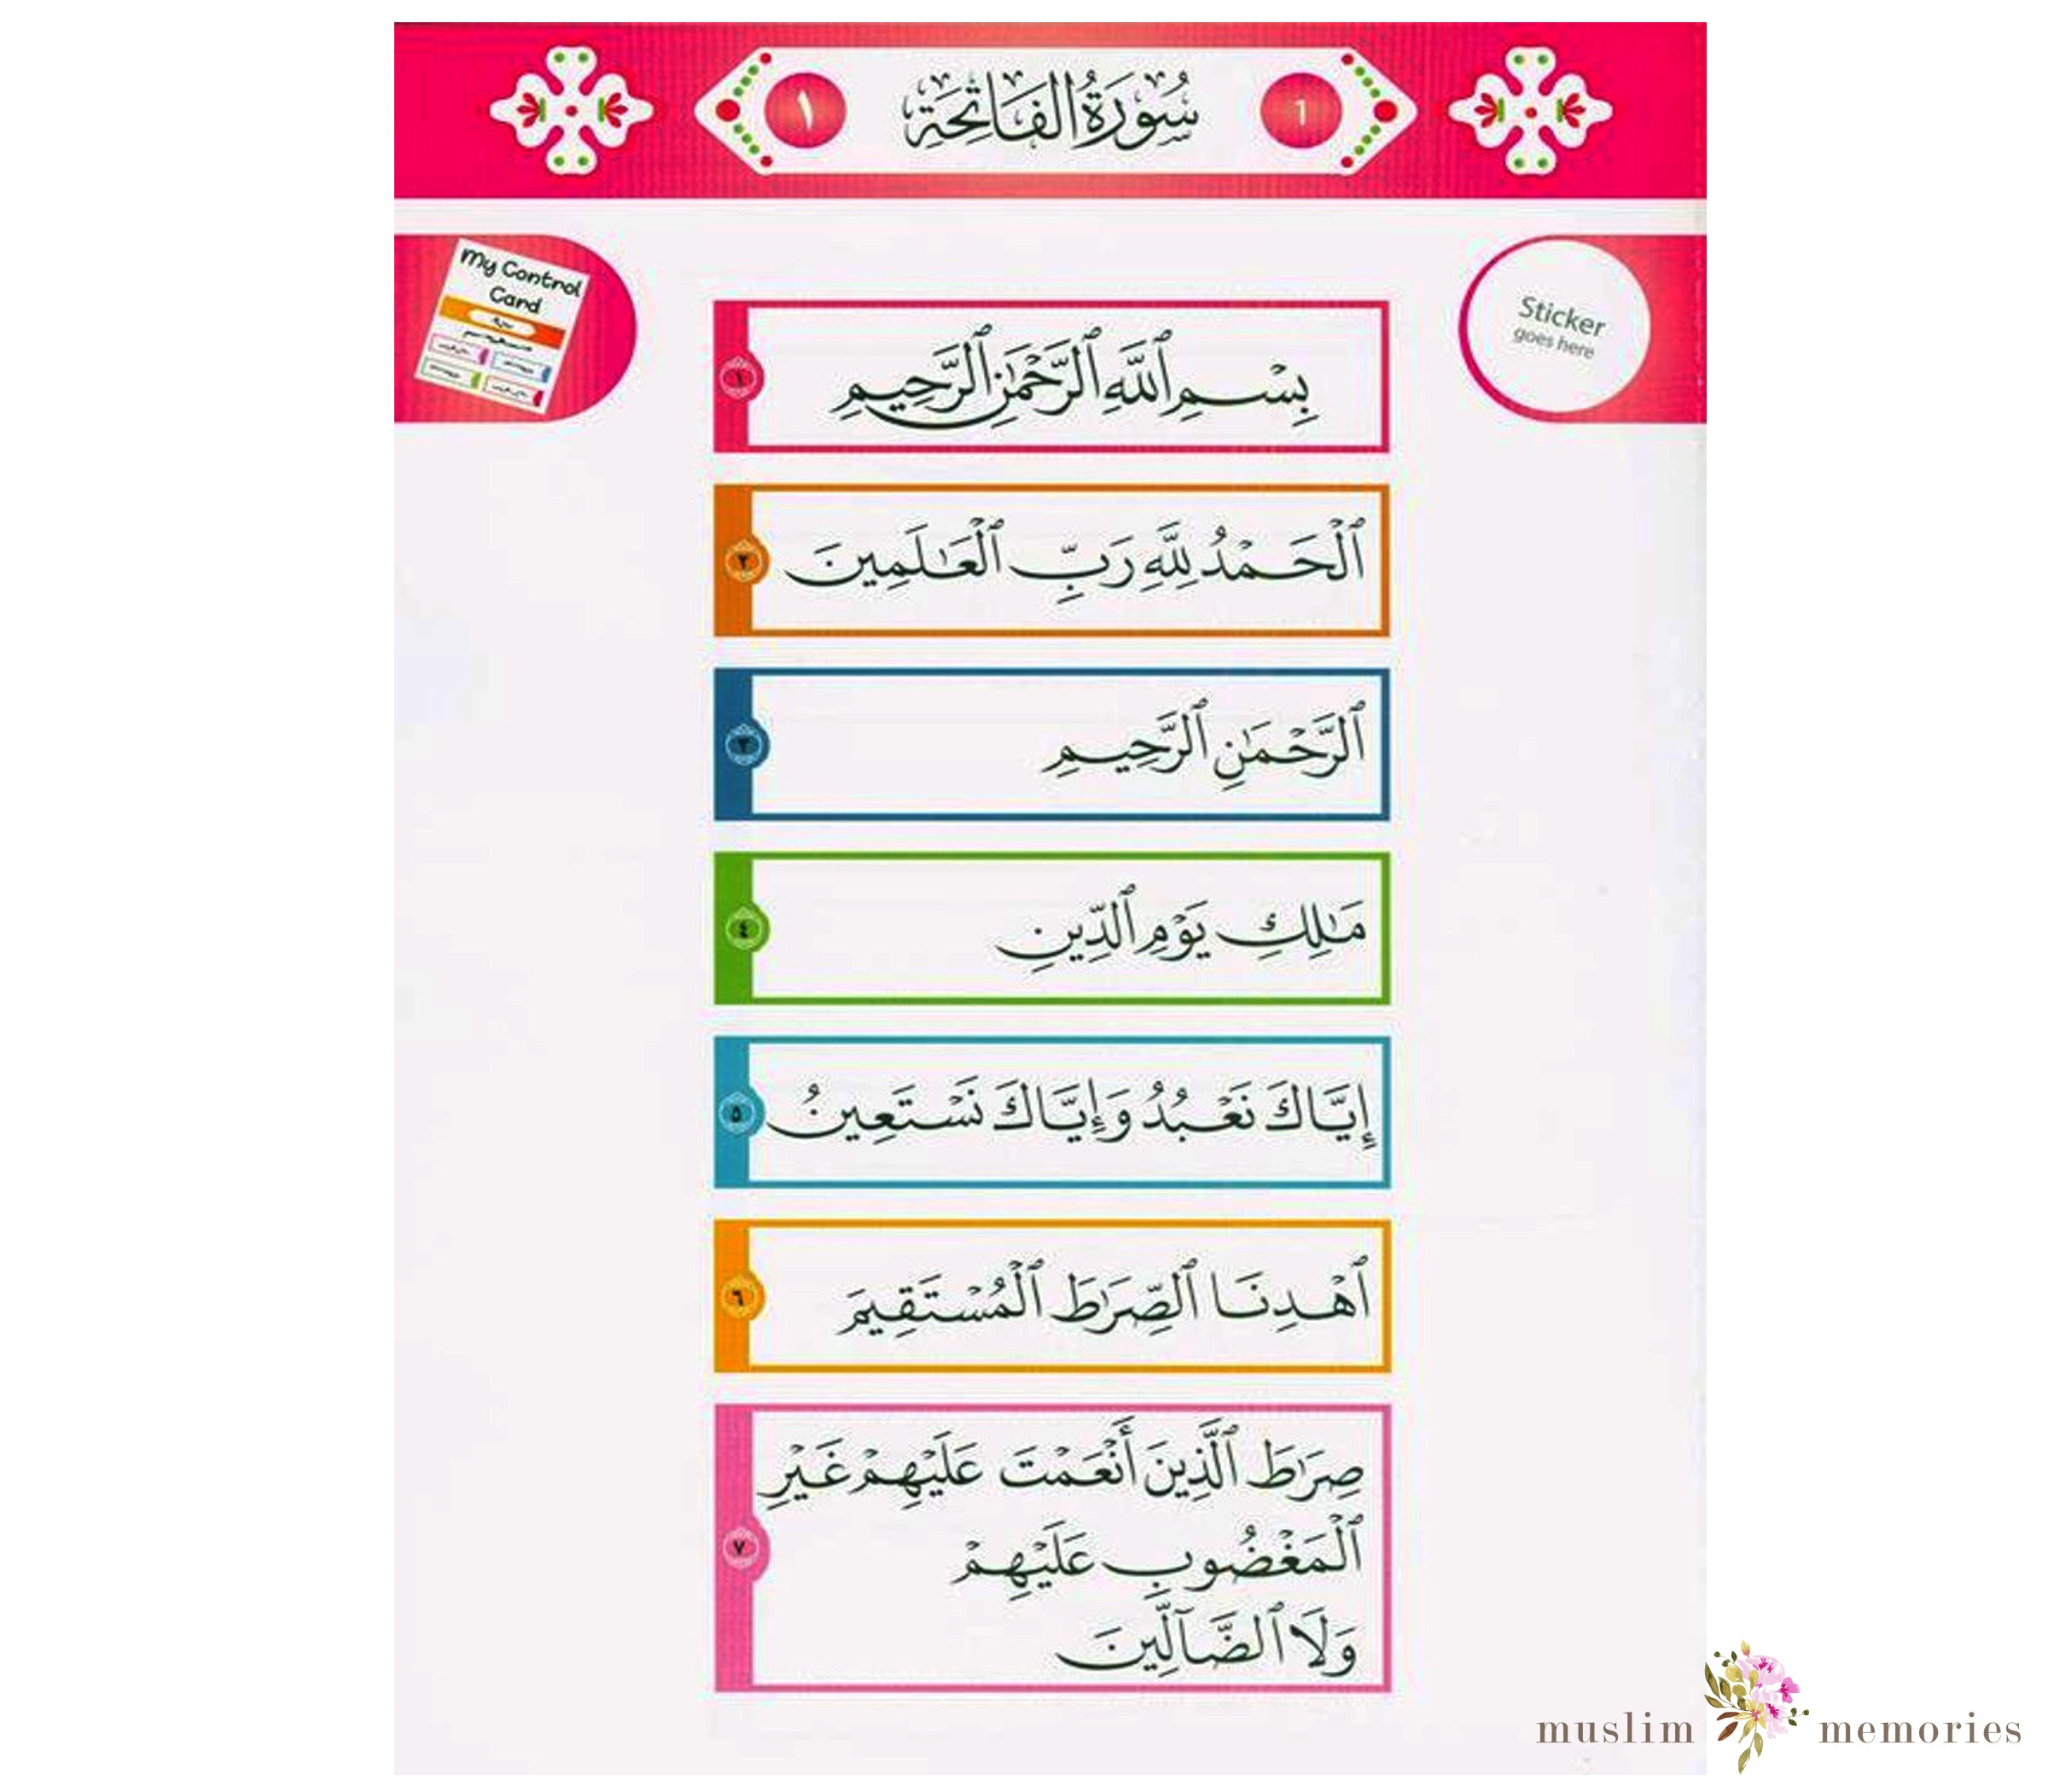 ١ سُورَةُ الفَاتِحَةِ 1
My Control
Card
Sticker
goes here
بِسْمِ ٱللَّهِ ٱلرَّحْمَٰنِ ٱلرَّحِيمِ ١
ٱلْحَمْدُ لِلَّهِ رَبِّ ٱلْعَٰلَمِينَ ٢
ٱلرَّحْمَٰنِ ٱلرَّحِيمِ ٣
مَٰلِكِ يَوْمِ ٱلدِّينِ ٤
إِيَّاكَ نَعْبُدُ وَإِيَّاكَ نَسْتَعِينُ ٥
ٱهْدِنَا ٱلصِّرَٰطَ ٱلْمُسْتَقِيمَ ٦
صِرَٰطَ ٱلَّذِينَ أَنْعَمْتَ عَلَيْهِمْ غَيْرِ
ٱلْمَغْضُوبِ عَلَيْهِمْ ٧
وَلَا ٱلضَّآلِّينَ
muslim memories